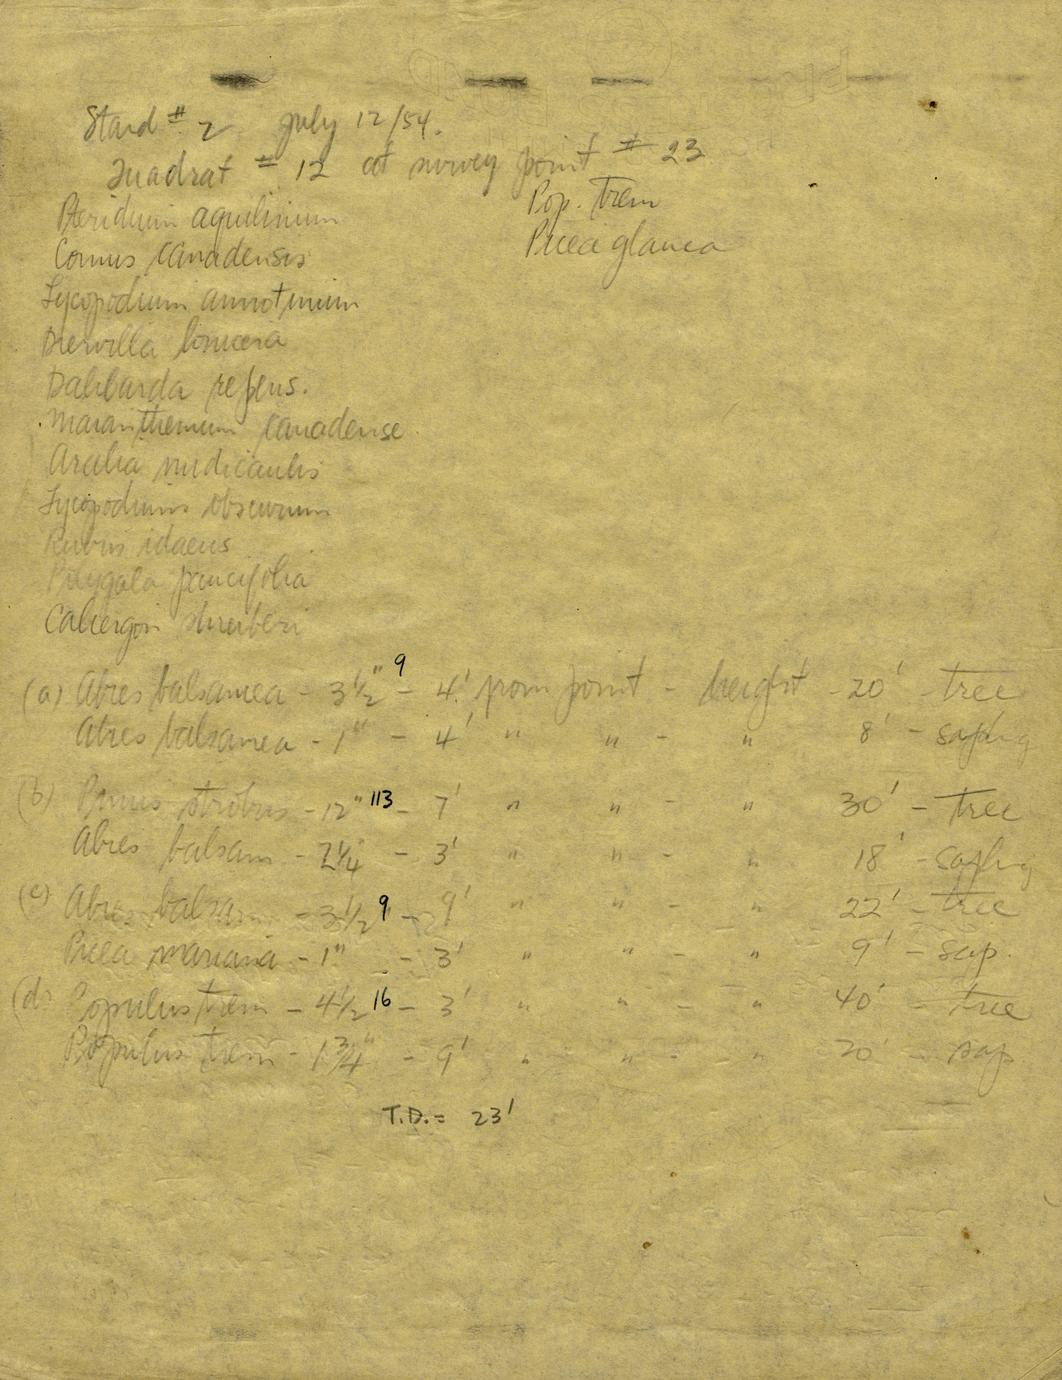 Stand # 2 July 12/54.
Quadrat # 12 at survey point # 23
Pteridium aquilinum
Cornus canadensis
Lycopodium annotinum
Diervilla lonicera
Dalibarda repens.
Maianthemum canadense
Aralia nudicaulis
Lycopodium obscurum
Rubus idaeus
Polygala paucifolia
Calliergon shreiberi
Pop. trem
Picea glauca
(a) Abies balsamea - 3½" 9 - 4' from point - height - 20' - tree
Abies balsamea - 1" - 4' " " - " 8' - sapling
(b) Pinus strobus - 12" 113 - 7' " " - " 30' - tree
Abies balsam - 2¼" - 3' " " - " 18' - sapling
(c) Abies balsam - 3½" 9 - 9' " " - " 22' - tree
Picea mariana - 1" - 3' " " - " 9' - sap.
(d) Populus trem - 4½ 16 - 3' " " - " 40' - tree
Populus trem - 1¾" - 9' " " - " 20' - sap
T.D. = 23'